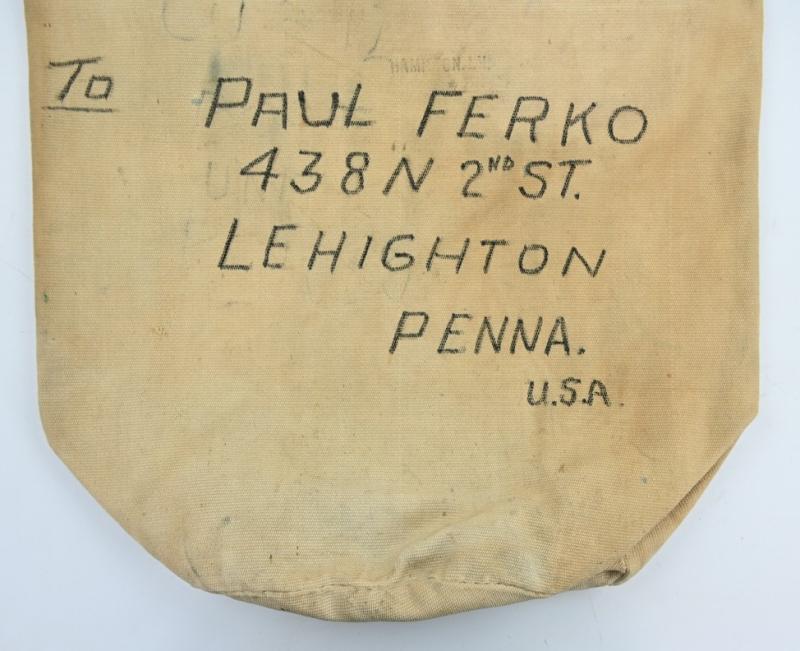 To
PAUL FERKO
438 N 2ND ST.
LEHIGHTON
PENNA.
U.S.A.